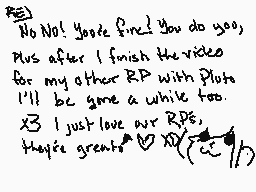 RE)
No No! You're fine! You do you,
Plus after I finish the video
for my other RP with Pluto
I'll be gone a while too.
X3 I just love our RPs,
they're great XD